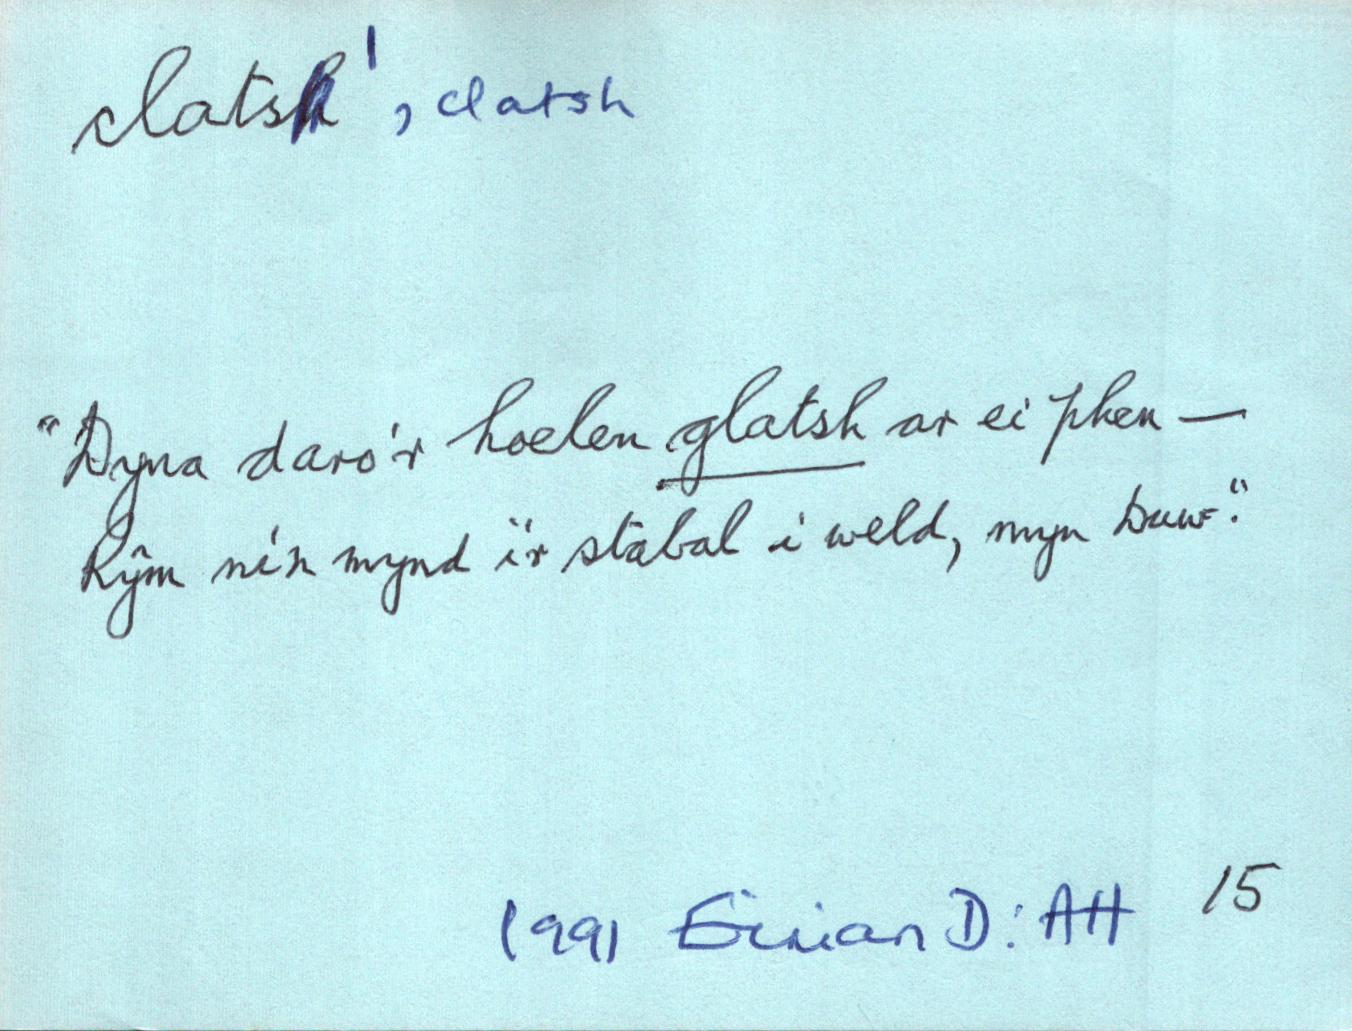 clatsh¹, clatsh
"Dyna daro'r hoelen glatsh ar ei phen —
Rŷm ni'n mynd i'r stabal i weld, myn Duw."
1991 Eirian D: AH 15